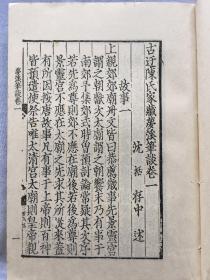 古迂陳氏家藏夢溪筆談卷一
沈括存中述
故事一
上親郊郊廟冊文皆曰恭薦歲事先景靈宮
謂之朝獻次太廟謂之朝饗末乃有事于
南郊予集郊式時曾預討論常疑其次序
若先為尊則郊不應在廟後若後為尊則
景靈宮不應在太廟之先求其所從來蓋
有所因按唐故事凡有事于上帝則百神
皆預遣使祭告唯太清宮太廟則皇帝親
夢溪筆談卷一